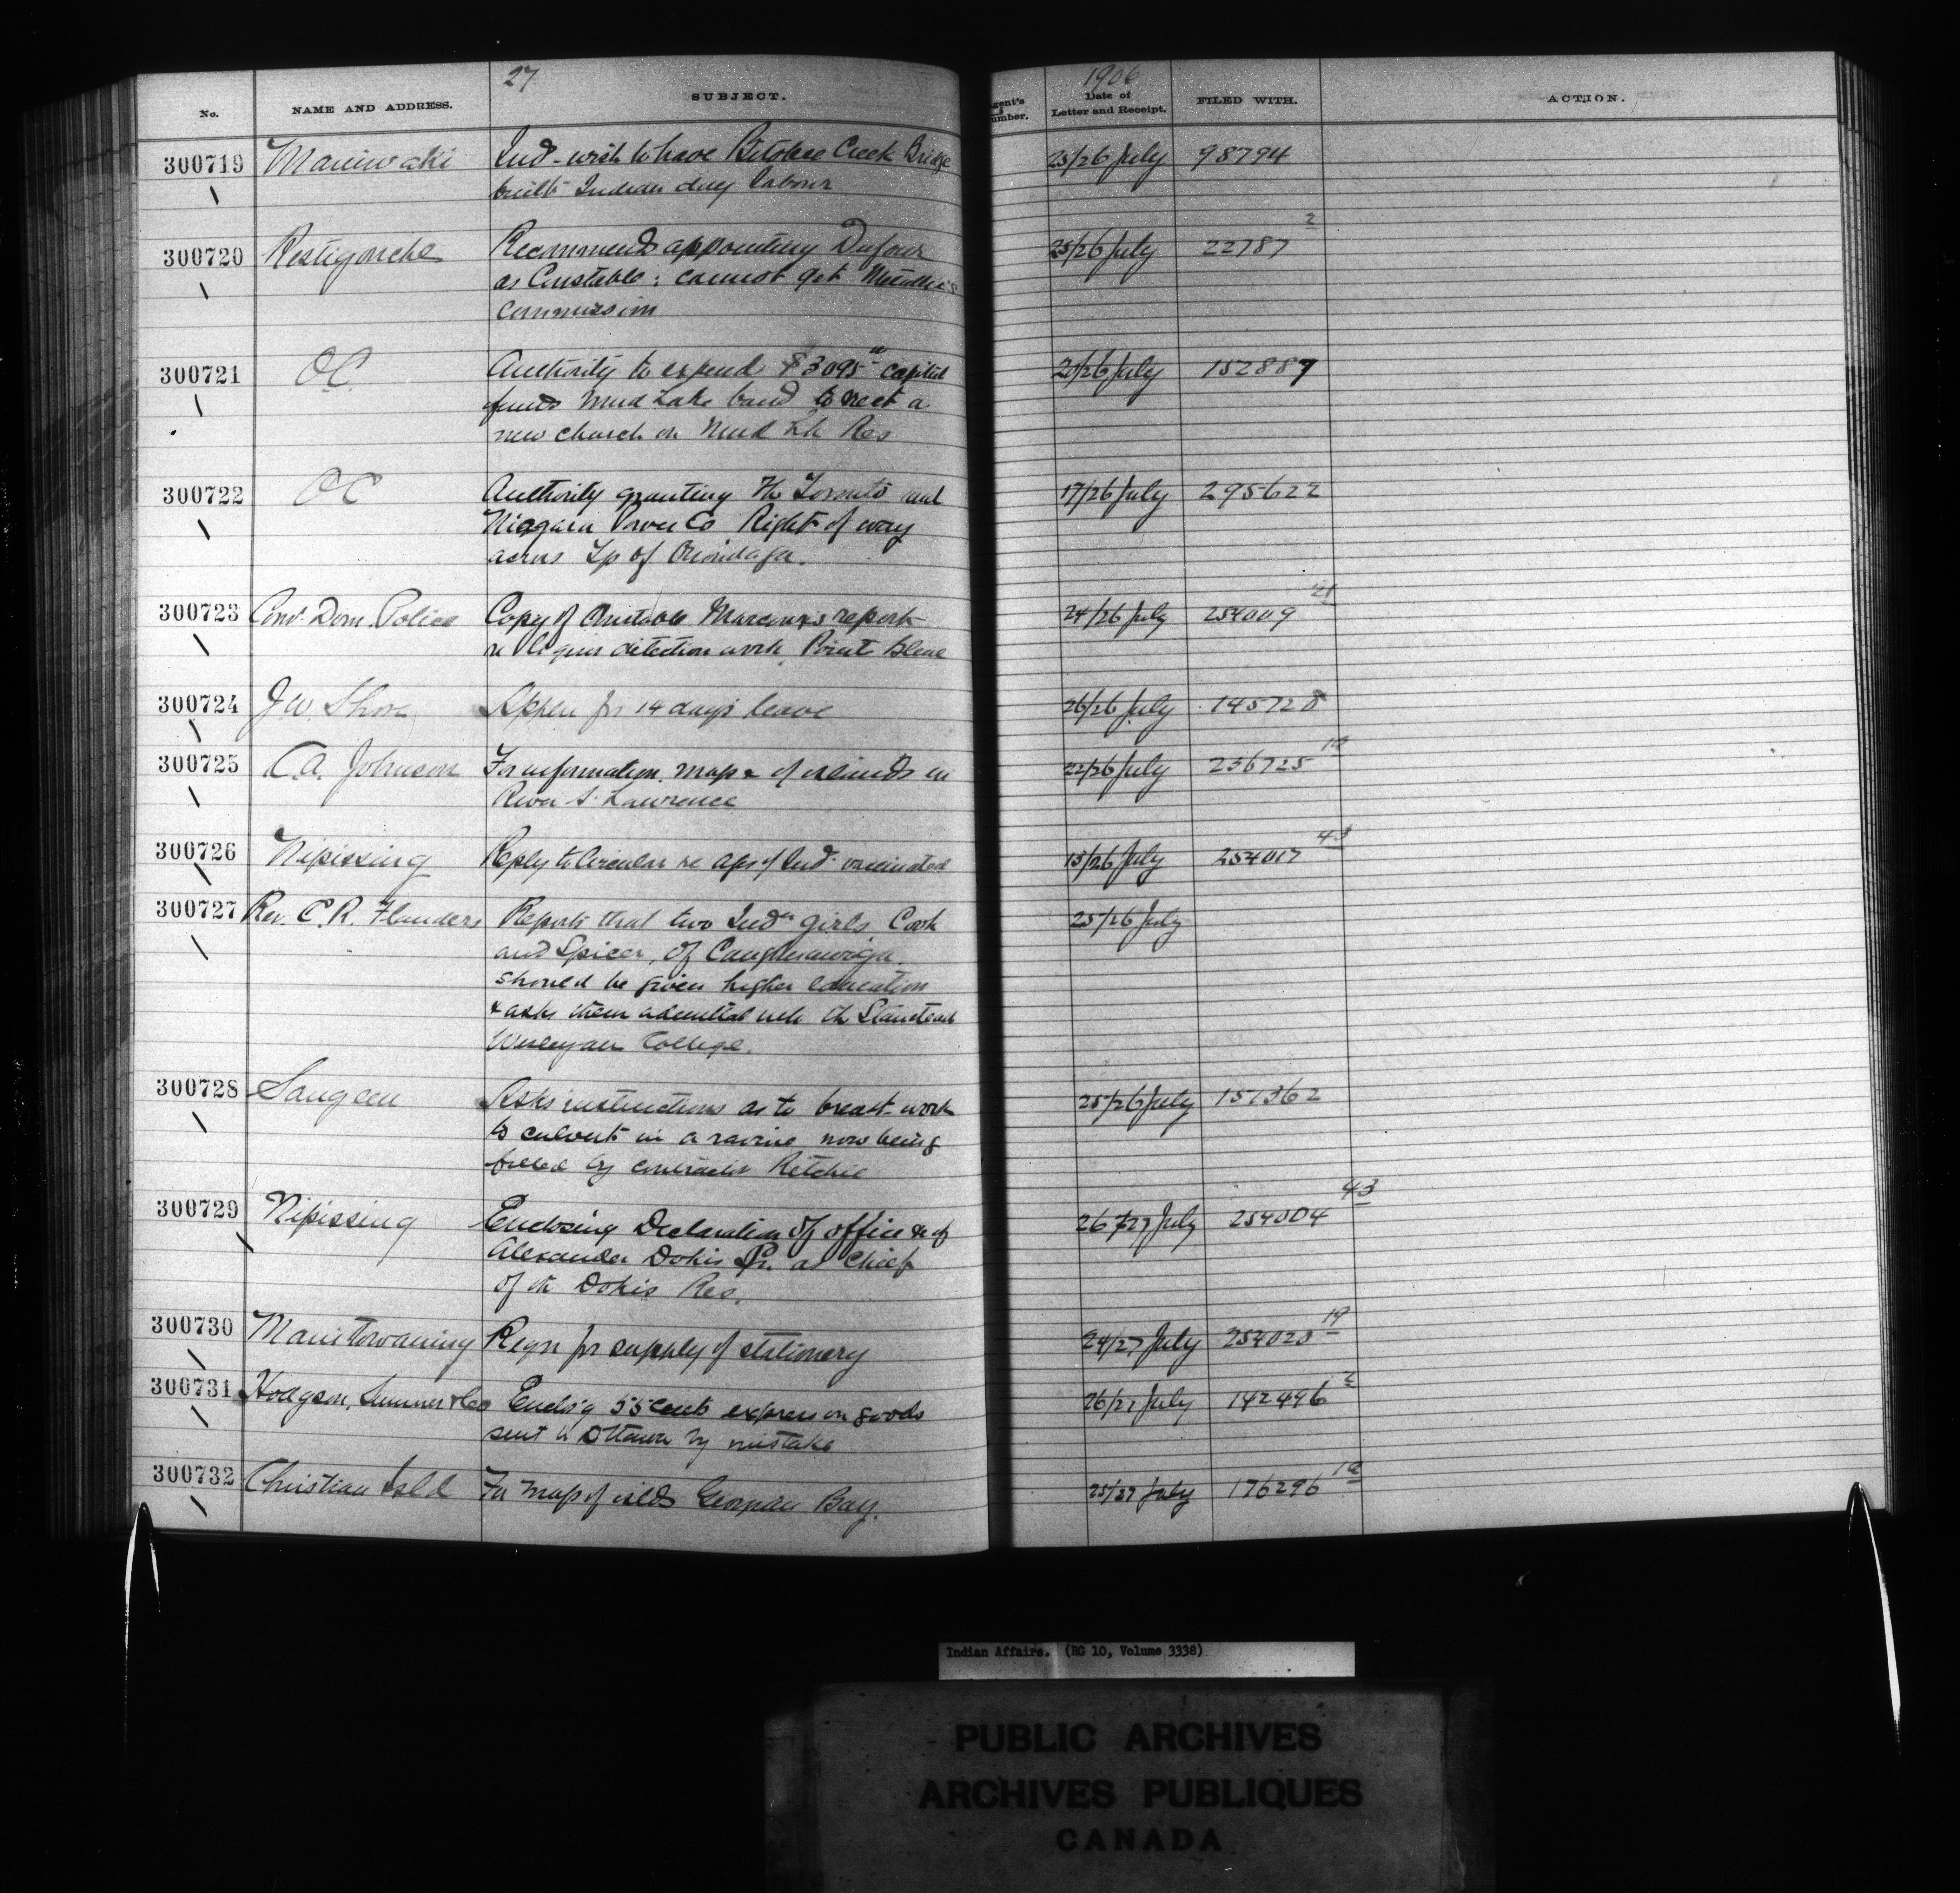 27
1906
No. NAME AND ADDRESS. SUBJECT. Agent's Number. Date of Letter and Receipt. FILED WITH. ACTION.
300719 Maniwaki Ind- wish to have Bitobee Creek Bridge 25/26 July 98794
built Indian day labour
300720 Restigouche Recommends appointing Dufour 25/26 July 22787 2
as Constable; cannot get
Commission
300721 OC Authority to expend $3095 capital 20/26 July 152887
funds Mud Lake band to erect a
new church on Mud Lk Res
300722 OC Authority granting The Toronto and 17/26 July 295622
Niagara Power Co Right of way
across Tp of Onondaga.
300723 Dom. Police Copy of Constable Marcoux's report 24/26 July 254009 21
re liquor detection work, Point Bleue
300724 J W. Shore 14 days leave 26/26 July 145728
300725 C.A. Johnson For information, map & of islands in 22/26 July 236725
River St. Lawrence
300726 Nipissing Reply to Circular re Ind. vaccinated 13/26 July 254017 43
300727 Rev. C. R. Flanders Reports that two Indn girls Cook 25/26 July
and Spicer, of Caughnawaga.
should be given higher education
& asks them admitted into th Stanstead
Wesleyan College.
300728 Saugeen Asks instructions as to breast-work 25/26 July 151362
to culvert in a ravine now being
filled by contractor Ritchie
300729 Nipissing Enclosing Declaration of office &c of 26/27 July 254004 43
Alexander Dokis Sr. as Chief
of th Dokis Res.
300730 Manitowaning Reqn for supply of stationery 24/27 July 254020 19
300731 Hodgson, Sumner & Co Enclos'g 55 cents express on goods 26/27 July 142496 2
sent to Ottawa by mistake
300732 Christian Isld For map of islds Georgian Bay. 25/27 July 176296
Indian Affairs. (RG 10, Volume 3338)
PUBLIC ARCHIVES
ARCHIVES PUBLIQUES
CANADA